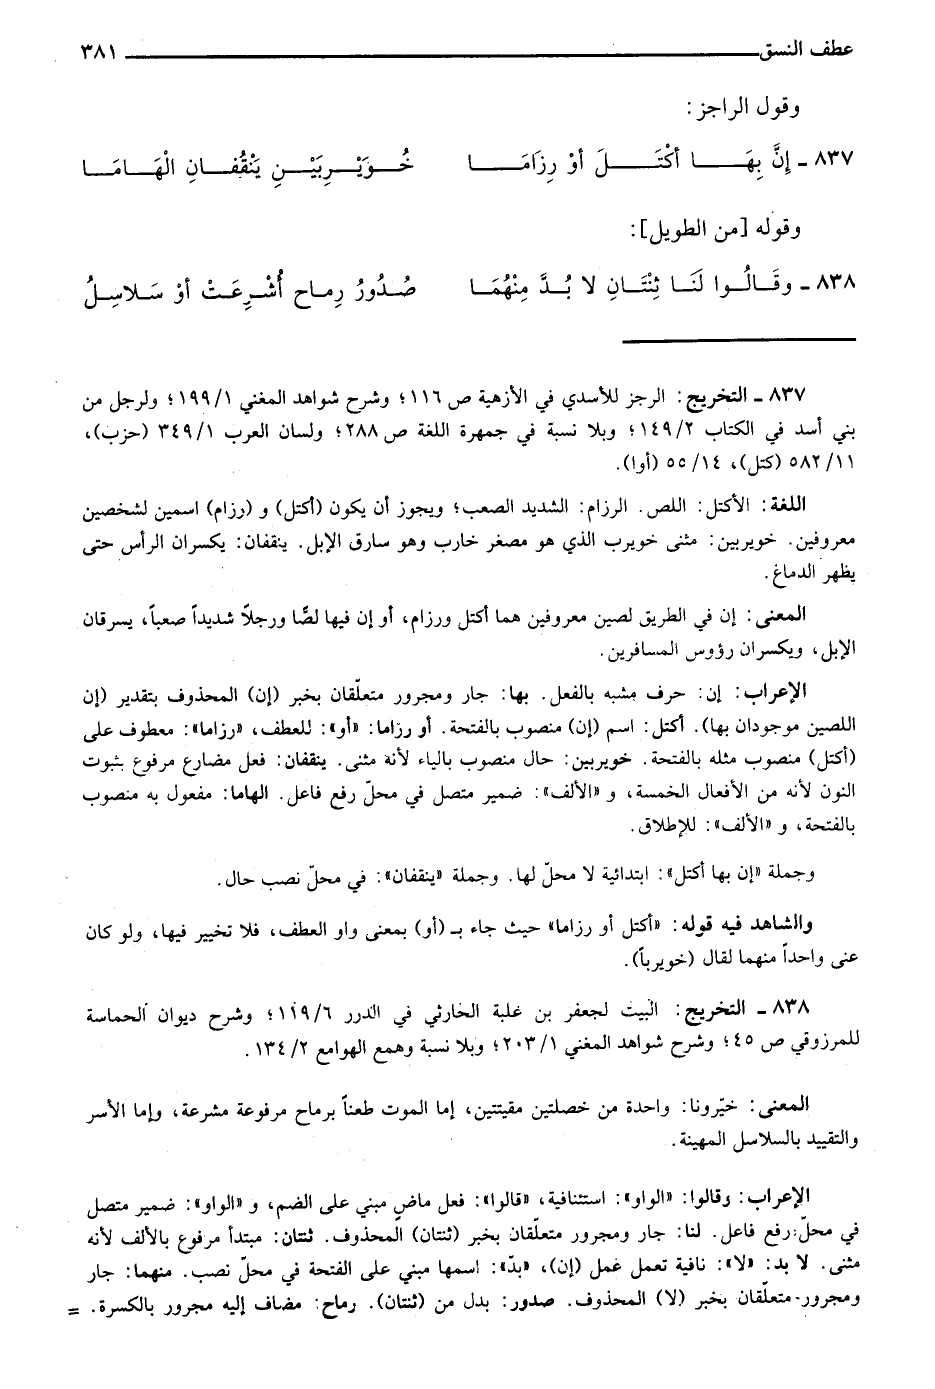 عطف النسق ٣٨١
وقول الراجز:
٨٣٧ ـ إنَّ بِهَـــا أكْتَـــلَ أوْ رِزَامَـــا خُـوَيْـرِبَيْـنِ يَنْقُفـانِ الْهَـامَـا
وقوله [من الطويل]:
٨٣٨ ـ وقَـالُـوا لَنَـا ثِنْتَـانِ لا بُـدَّ مِنْهُمَـا صُدُورُ رِماحٍ أُشْرِعَتْ أوْ سَلاسِلُ
٨٣٧ ـ التخريج: الرجز للأسدي في الأزهية ص ١١٦؛ وشرح شواهد المغني ١/ ١٩٩؛ ولرجل من
بني أسد في الكتاب ٢/ ١٤٩؛ وبلا نسبة في جمهرة اللغة ص ٢٨٨؛ ولسان العرب ١/ ٣٤٩ (حزب)،
١١/ ٥٨٢ (كتل)، ١٤/ ٥٥ (أوا).
اللغة: الأكتل: اللص. الرزام: الشديد الصعب؛ ويجوز أن يكون (أكتل) و (رزام) اسمين لشخصين
معروفين. خويربين: مثنى خويرب الذي هو مصغر خارب وهو سارق الإبل. ينقفان: يكسران الرأس حتى
يظهر الدماغ.
المعنى: إن في الطريق لصين معروفين هما أكتل ورزام، أو إن فيها لصًّا ورجلاً شديداً صعباً، يسرقان
الإبل، ويكسران رؤوس المسافرين.
الإعراب: إن: حرف مشبه بالفعل. بها: جار ومجرور متعلّقان بخبر (إن) المحذوف بتقدير (إن
اللصين موجودان بها). أكتل: اسم (إن) منصوب بالفتحة. أو رزاما: «أو»: للعطف، «رزاما»: معطوف على
(أكتل) منصوب مثله بالفتحة. خويربين: حال منصوب بالياء لأنه مثنى. ينقفان: فعل مضارع مرفوع بثبوت
النون لأنه من الأفعال الخمسة، و «الألف»: ضمير متصل في محلّ رفع فاعل. الهاما: مفعول به منصوب
بالفتحة، و «الألف»: للإطلاق.
وجملة «إن بها أكتل»: ابتدائية لا محلّ لها. وجملة «ينقفان»: في محلّ نصب حال.
والشاهد فيه قوله: «أكتل أو رزاما» حيث جاء بـ (أو) بمعنى واو العطف، فلا تخيير فيها، ولو كان
عنى واحداً منهما لقال (خويرباً).
٨٣٨ ـ التخريج: البيت لجعفر بن علبة الحارثي في الدرر ٦/ ١١٩؛ وشرح ديوان الحماسة
للمرزوقي ص ٤٥؛ وشرح شواهد المغني ١/ ٢٠٣؛ وبلا نسبة وهمع الهوامع ٢/ ١٣٤.
المعنى: خيّرونا: واحدة من خصلتين مقيتتين، إما الموت طعناً برماح مرفوعة مشرعة، وإما الأسر
والتقييد بالسلاسل المهينة.
الإعراب: وقالوا: «الواو»: استئنافية، «قالوا»: فعل ماضٍ مبني على الضم، و «الواو»: ضمير متصل
في محلّ رفع فاعل. لنا: جار ومجرور متعلّقان بخبر (ثنتان) المحذوف. ثنتان: مبتدأ مرفوع بالألف لأنه
مثنى. لا بد: «لا»: نافية تعمل عمل (إن)، «بدّ»: اسمها مبني على الفتحة في محلّ نصب. منهما: جار
ومجرور متعلّقان بخبر (لا) المحذوف. صدور: بدل من (ثنتان). رماح: مضاف إليه مجرور بالكسرة. =